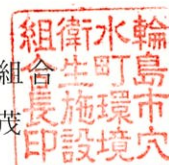 組合
茂
輪島市穴
水町環境
衛生施設
組合長印